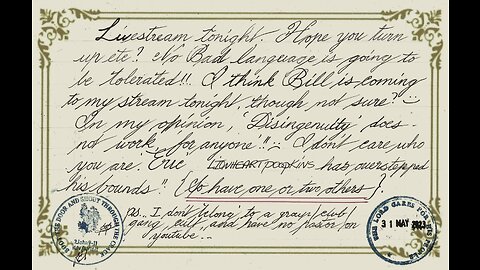 Livestream tonight. Hope you turn
up etc? No Bad language is going to
be tolerated!! I think Bill is coming
to my stream tonight, though not sure?
In my opinion, 'Disingenuity' does
not work, for anyone!! I don't care who
you are. Eric LIONHEARTPOOPKINS has overstepped
his bounds!! (So have one or two others).
P.S... I don't 'belong' to a group/club/
gang, cult, and have no on
youtube...
LOCK THE DOOR AND SHOOT THROUGH THE CRACK
THE LORD CARES FOR THE
31 MAY 2021